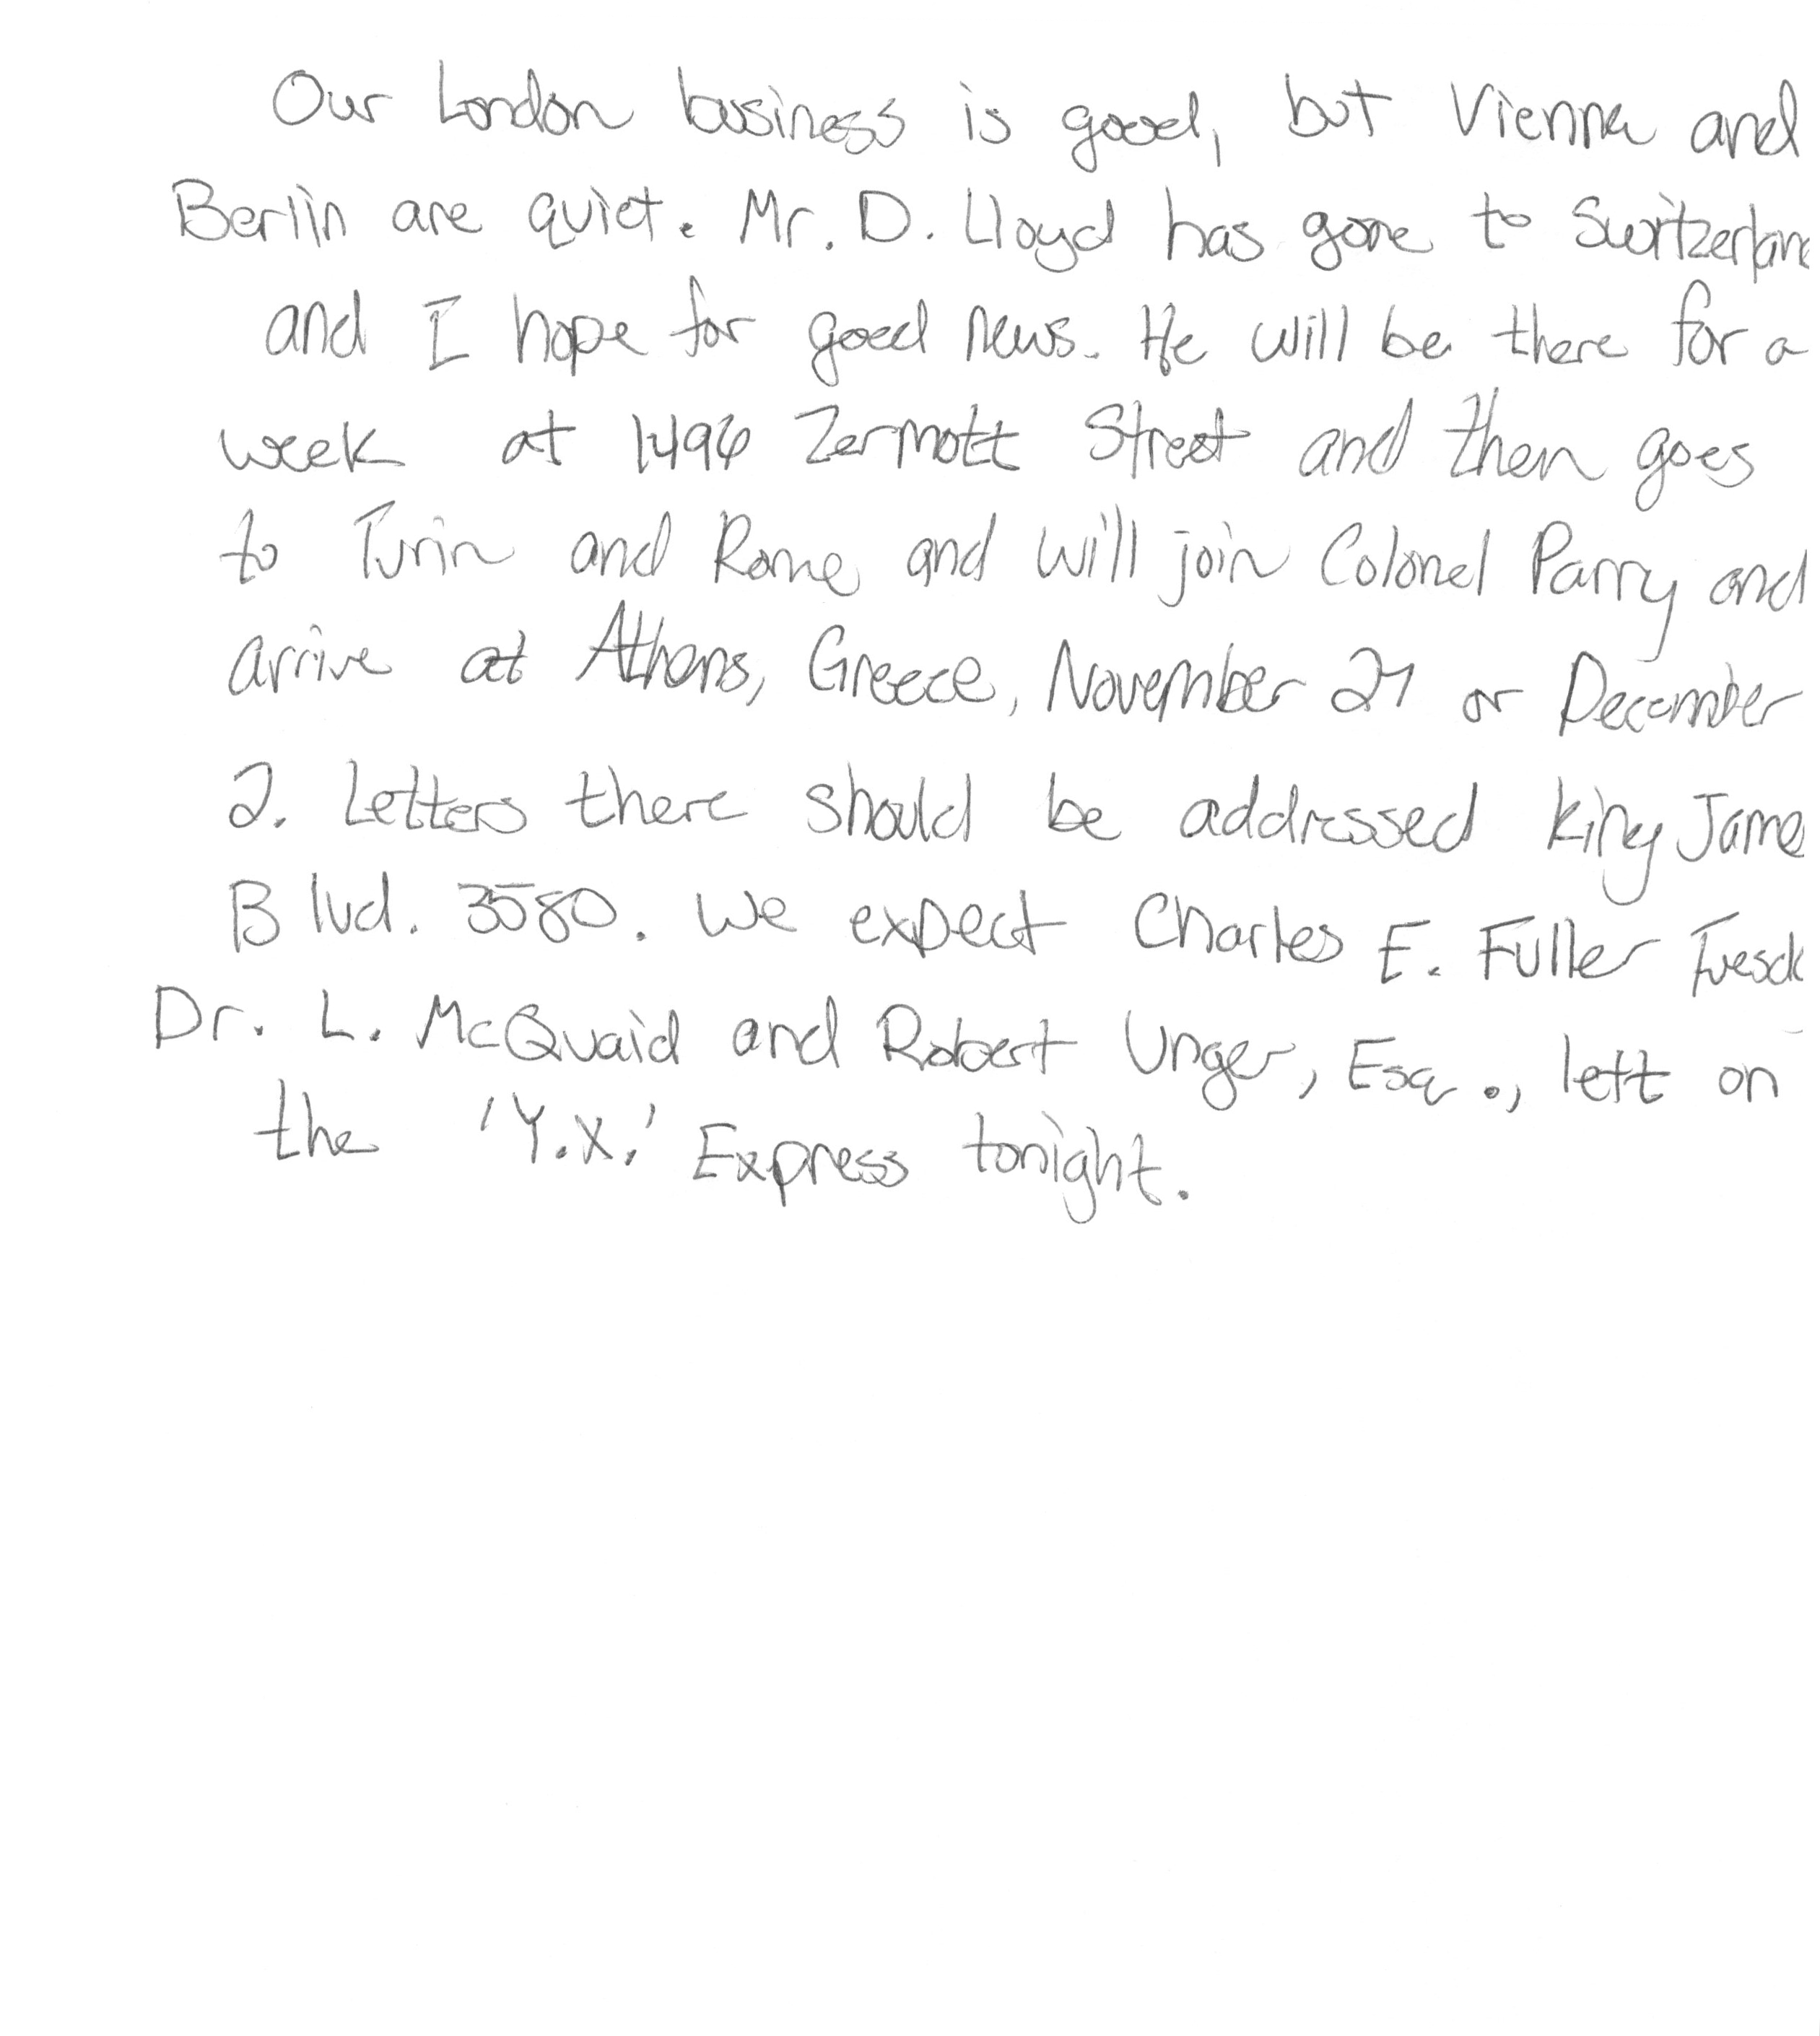 Our London business is good, but Vienna and
Berlin are quiet. Mr. D. Lloyd has gone to Switzerlan
and I hope for good news. He will be there for a
week at 1496 Zermott Street and then goes
to Turin and Rome and will join Colonel Parry and
arrive at Athens, Greece, November 27 or December
2. Letters there should be addressed King Jame
Blvd. 3580. We expect Charles E. Fuller Tuesd
Dr. L. McQuaid and Robert Unger, Esq., left on
the 'Y.X.' Express tonight.